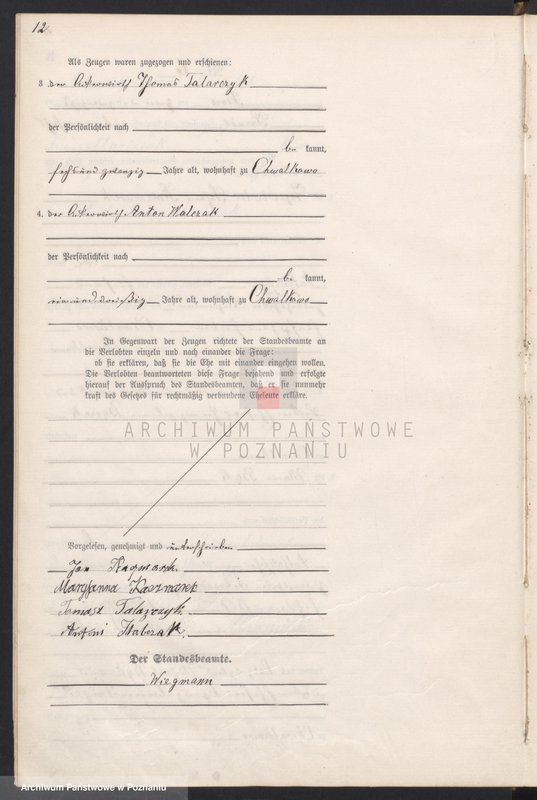 12
Als Zeugen waren zugezogen und erschienen:
3 der Ackerwirth Thomas Talarczyk
der Persönlichkeit nach
be kannt,
sechsundzwanzig Jahre alt, wohnhaft zu Chwalkowo
4. der Ackerwirth Anton Walczak
der Persönlichkeit nach
be kannt,
einunddreißig Jahre alt, wohnhaft zu Chwalkowo
In Gegenwart der Zeugen richtete der Standesbeamte an
die Verlobten einzeln und nach einander die Frage:
ob sie erklären, daß sie die Ehe mit einander eingehen wollen.
Die Verlobten beantworteten diese Frage bejahend und erfolgte
hierauf der Ausspruch des Standesbeamten, daß er sie nunmehr
kraft des Gesetzes für rechtmäßig verbundene Eheleute erkläre.
ARCHIWUM PAŃSTWOWE
W POZNANIU
Vorgelesen, genehmigt und unterschrieben
Jan
Maryjanna Kaczmarek
Tomasz Talarczyk.
Antoni
Der Standesbeamte.
Wiegmann
Archiwum Państwowe w Poznaniu